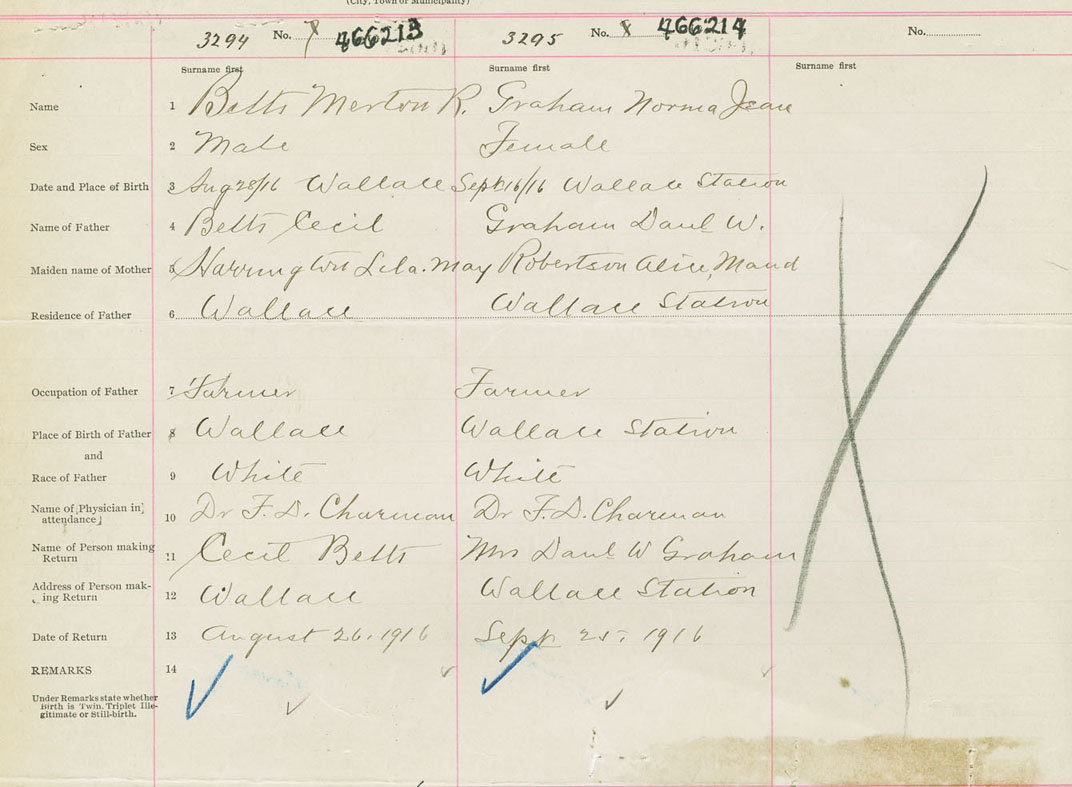 (City, Town or Municipality)
3294 No. 7 466213 3295 No. 8 466214 No.
Surname first Surname first Surname first
Name 1 Betts Merton R. Graham Norma Jean
Sex 2 Male Female
Date and Place of Birth 3 Aug 28/16 Wallace Sept 16/16 Wallace Station
Name of Father 4 Betts Cecil Graham Danl W.
Maiden name of Mother 5 Harrington Lila. May Robertson Alice, Maud
Residence of Father 6 Wallace Wallace Station
Occupation of Father 7 Farmer Farmer
Place of Birth of Father 8 Wallace Wallace Station
and
Race of Father 9 White White
Name of [Physician in
attendance] 10 Dr F. D. Charman Dr F. D. Charman
Name of Person making
Return 11 Cecil Betts Mrs Danl W Graham
Address of Person mak-
ing Return 12 Wallace Wallace Station
Date of Return 13 August 26. 1916 Sept 25. 1916
REMARKS 14
Under Remarks state whether
Birth is Twin, Triplet Ille-
gitimate or Still-birth.